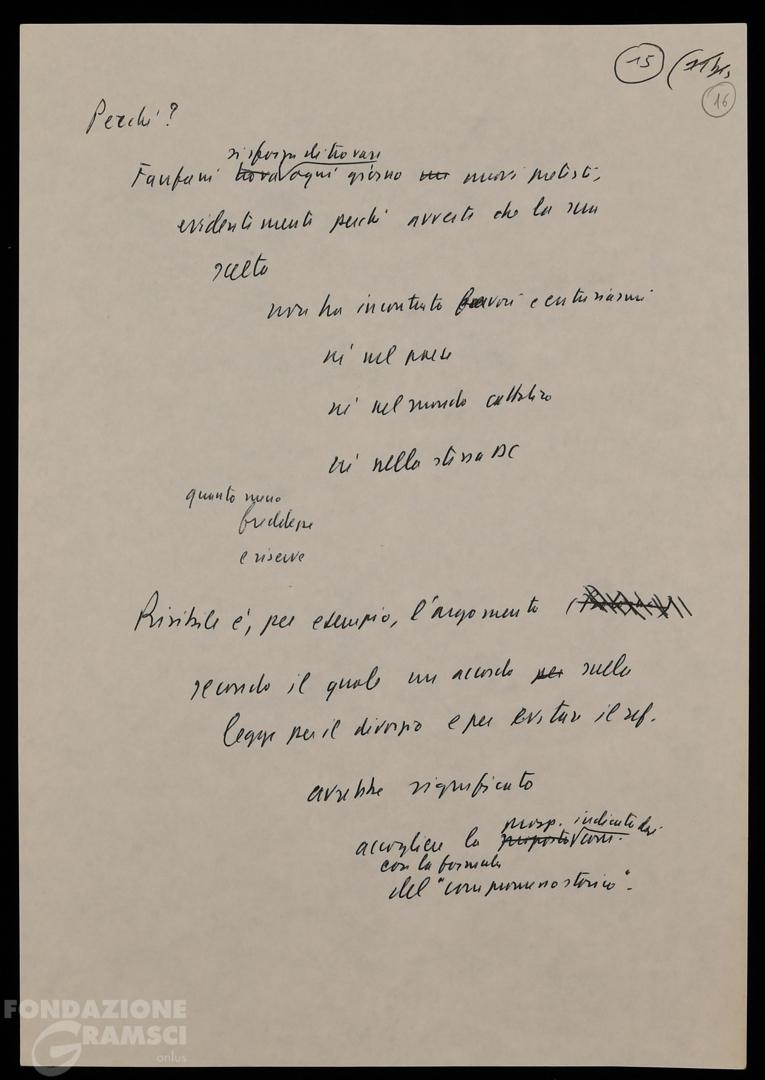 15
16
Perché?
si sforza di trovare
Fanfani trova ogni giorno un nuovi pretesti,
evidentemente perché avverte che la sua
scelta
non ha incontrato favori e entusiasmi
né nel paese
né nel mondo cattolico
né nella stessa DC
quanto meno
freddezze
e riserve
Risibile è, per esempio, l'argomento
secondo il quale un accordo per sulla
legge per il divorzio e per evitare il ref.
avrebbe significato
prosp. indicata dai
accogliere la proposta com.
con la formula
del "compromesso storico".
FONDAZIONE
GRAMSCI
onlus